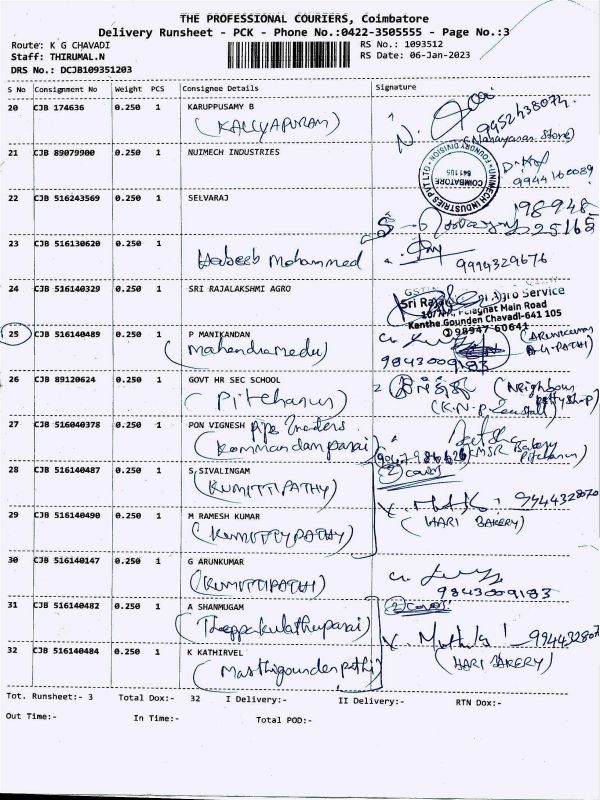 THE PROFESSIONAL COURIERS, Coimbatore
Delivery Runsheet - PCK - Phone No.:0422-3505555 - Page No.:3
Route: K G CHAVADI
RS No.: 1093512
Staff: THIRUMAL.N
RS Date: 06-Jan-2023
DRS No.: DCJB109351203
S No Consignment No Weight PCS Consignee Details Signature
20 CJB 174636 0.250 1 KARUPPUSAMY B
(KALIYAPURAM)
(Narayanan Store)
21 CJB 89079900 0.250 1 NUIMECH INDUSTRIES
UNIMECH INDUSTRIES PVT LTD • FOUNDRY DIVISION •
COIMBATORE
641105
9944160089
22 CJB 516243569 0.250 1 SELVARAJ
98948
25165
23 CJB 516130620 0.250 1
Habeeb Mohammed
9994329676
24 CJB 516140329 0.250 1 SRI RAJALAKSHMI AGRO
Agro Service
Main Road
Kantha Gounden Chavadi-641 105
98947 60641
25 CJB 516140489 0.250 1 P MANIKANDAN
(Mahendramedu)
9843009183
26 CJB 89120624 0.250 1 GOVT HR SEC SCHOOL
(Pitchanur)
(Neighbour
27 CJB 516040378 0.250 1 PON VIGNESH Pipe Traders
(Kommandamparai)
KMSR Bakery
Pitchanur)
28 CJB 516140487 0.250 1 S,SIVALINGAM
(KUMITTIPATHY)
2 covers
9944432807
(HARI BAKERY)
29 CJB 516140490 0.250 1 M RAMESH KUMAR
(KUMITTYPATHY)
30 CJB 516140147 0.250 1 G ARUNKUMAR
(KUMITTIPATHI)
9843009183
31 CJB 516140482 0.250 1 A SHANMUGAM
(Theppakulathuparai)
2 covers
994432807
(HARI BAKERY)
32 CJB 516140484 0.250 1 K KATHIRVEL
(Masthigoundenpathi)
Tot. Runsheet:- 3 Total Dox:- 32 I Delivery:- II Delivery:- RTN Dox:-
Out Time:- In Time:- Total POD:-